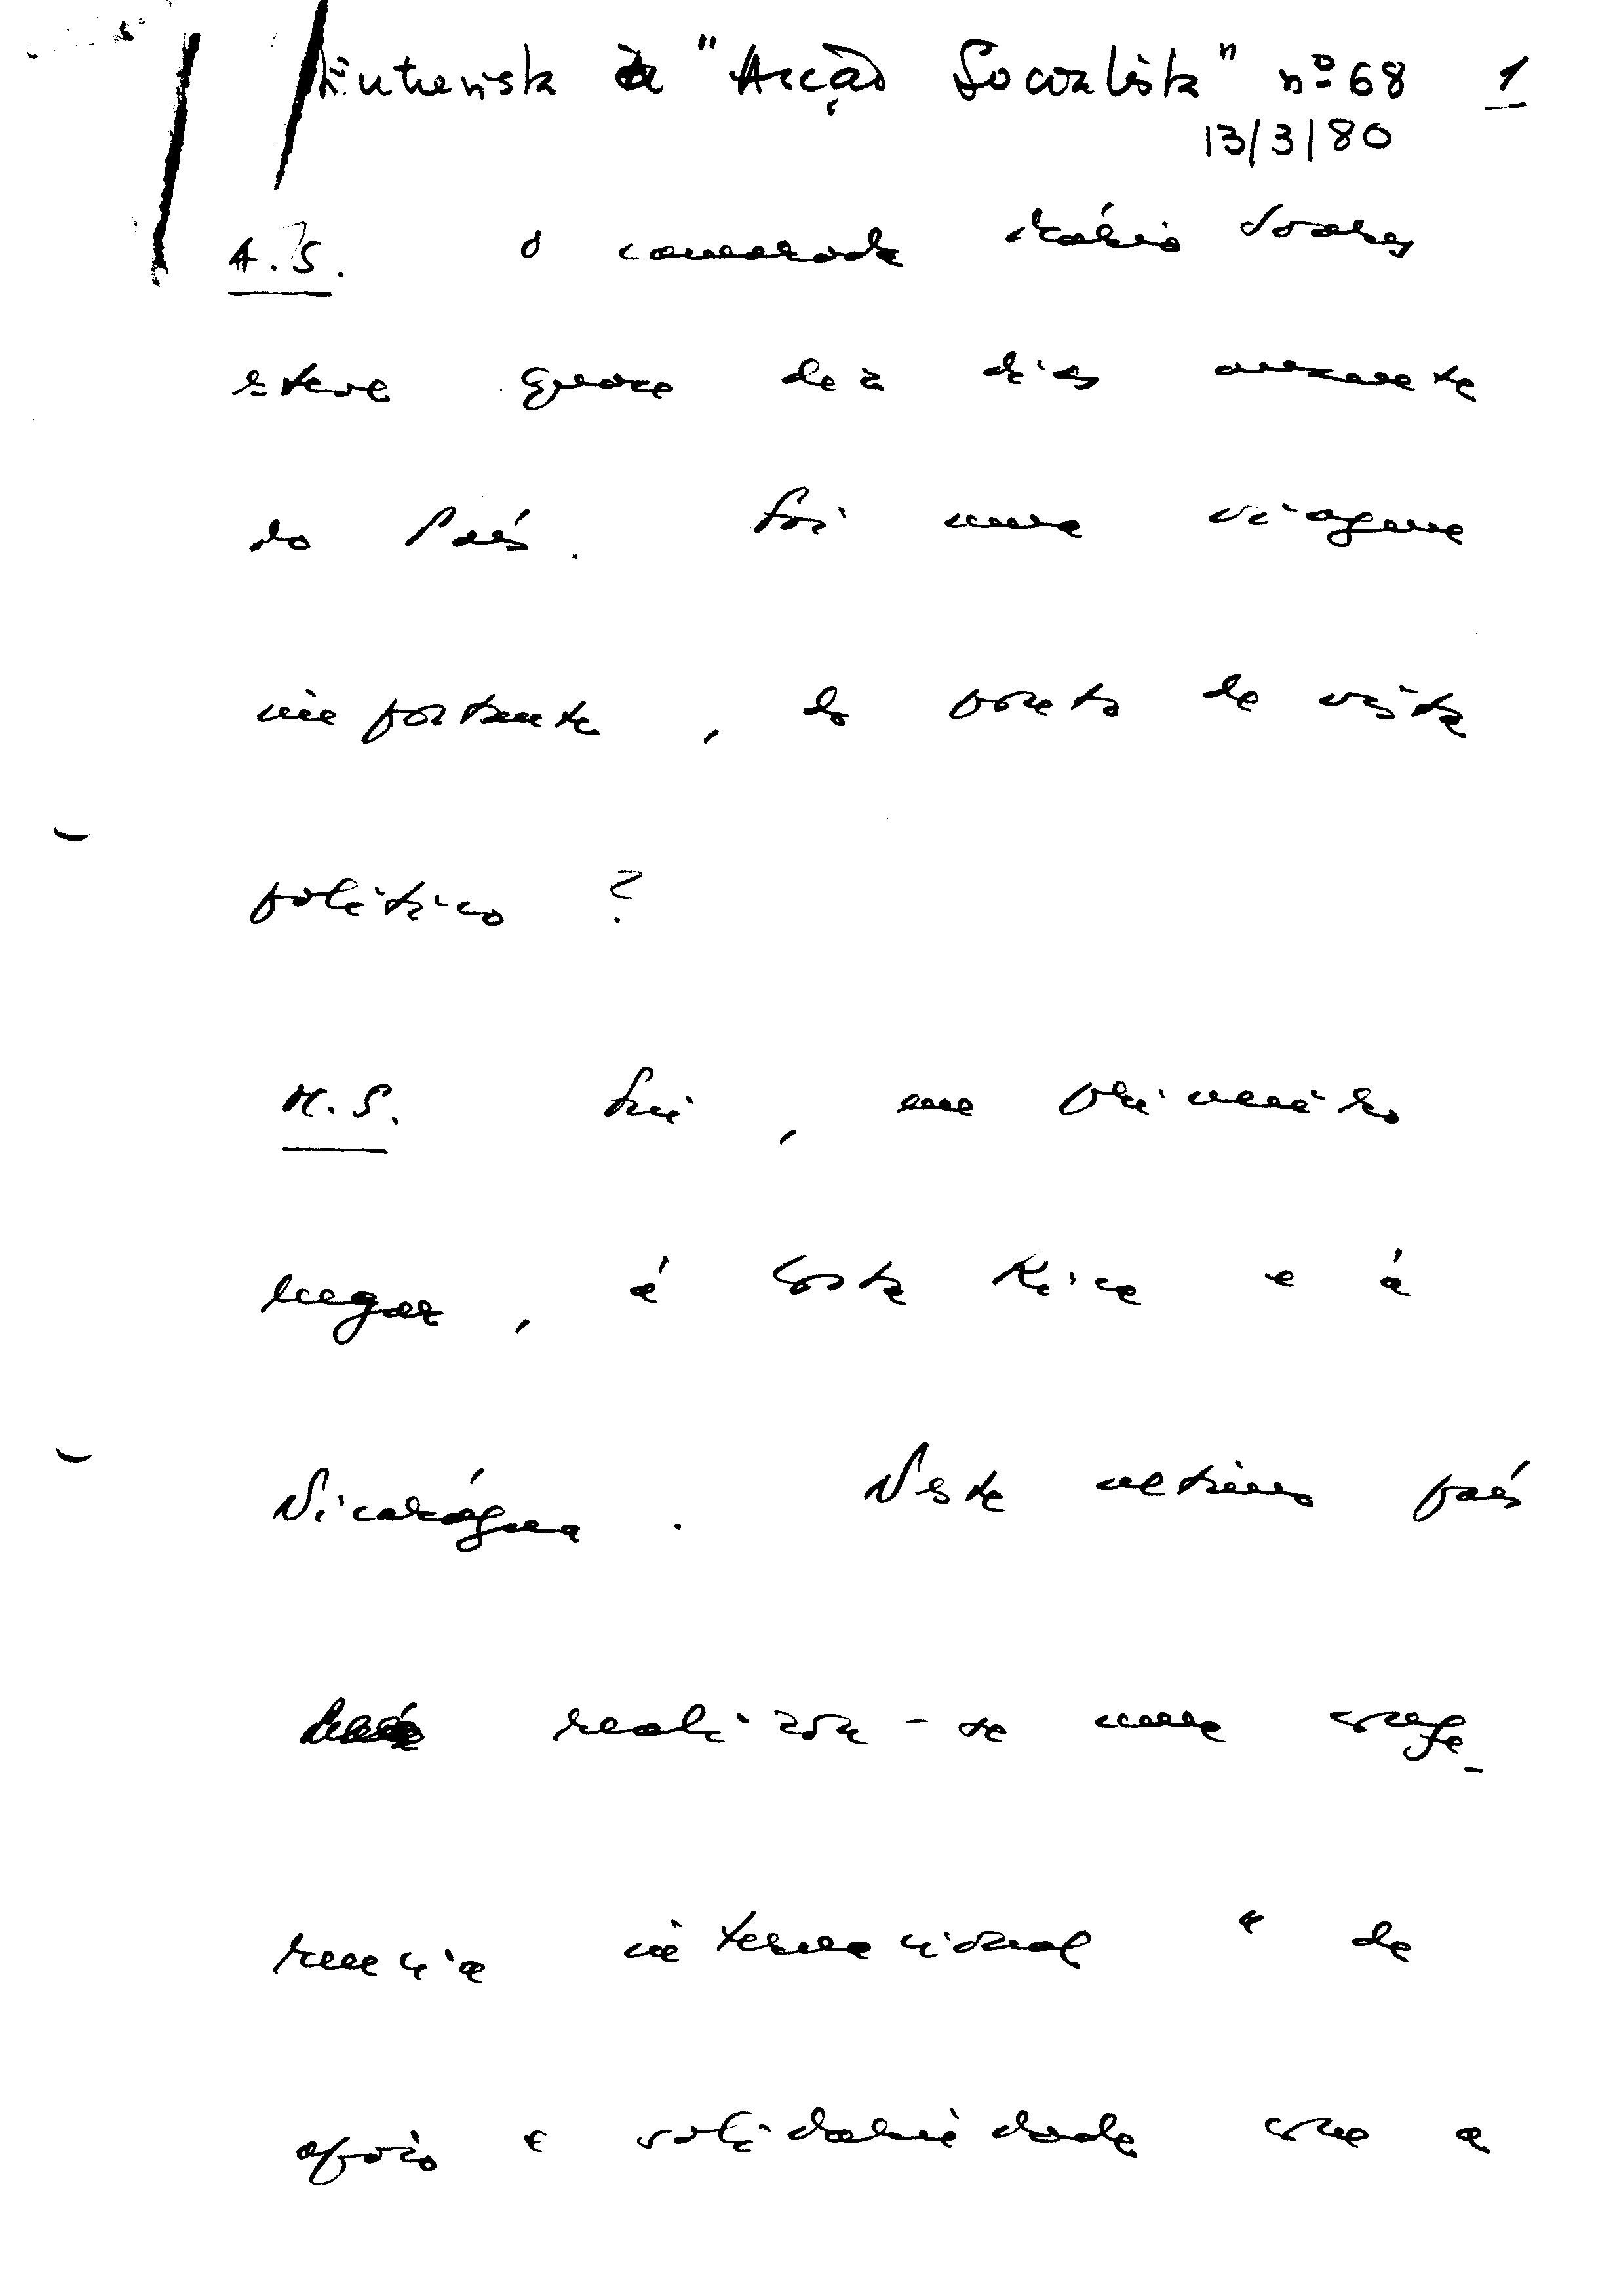 Entrevista à "Acção Socialista" nº 68 1
13/3/80
A.S. O camarada Mário Soares
esteve quase dez dias ausente
do País. Foi uma viagem
importante, do ponto de vista
político?
M.S. Fui, em primeiro
lugar, à Costa Rica e à
Nicarágua. Neste último país
realizou-se uma confe-
rência internacional " de
apoio e solidariedade com a